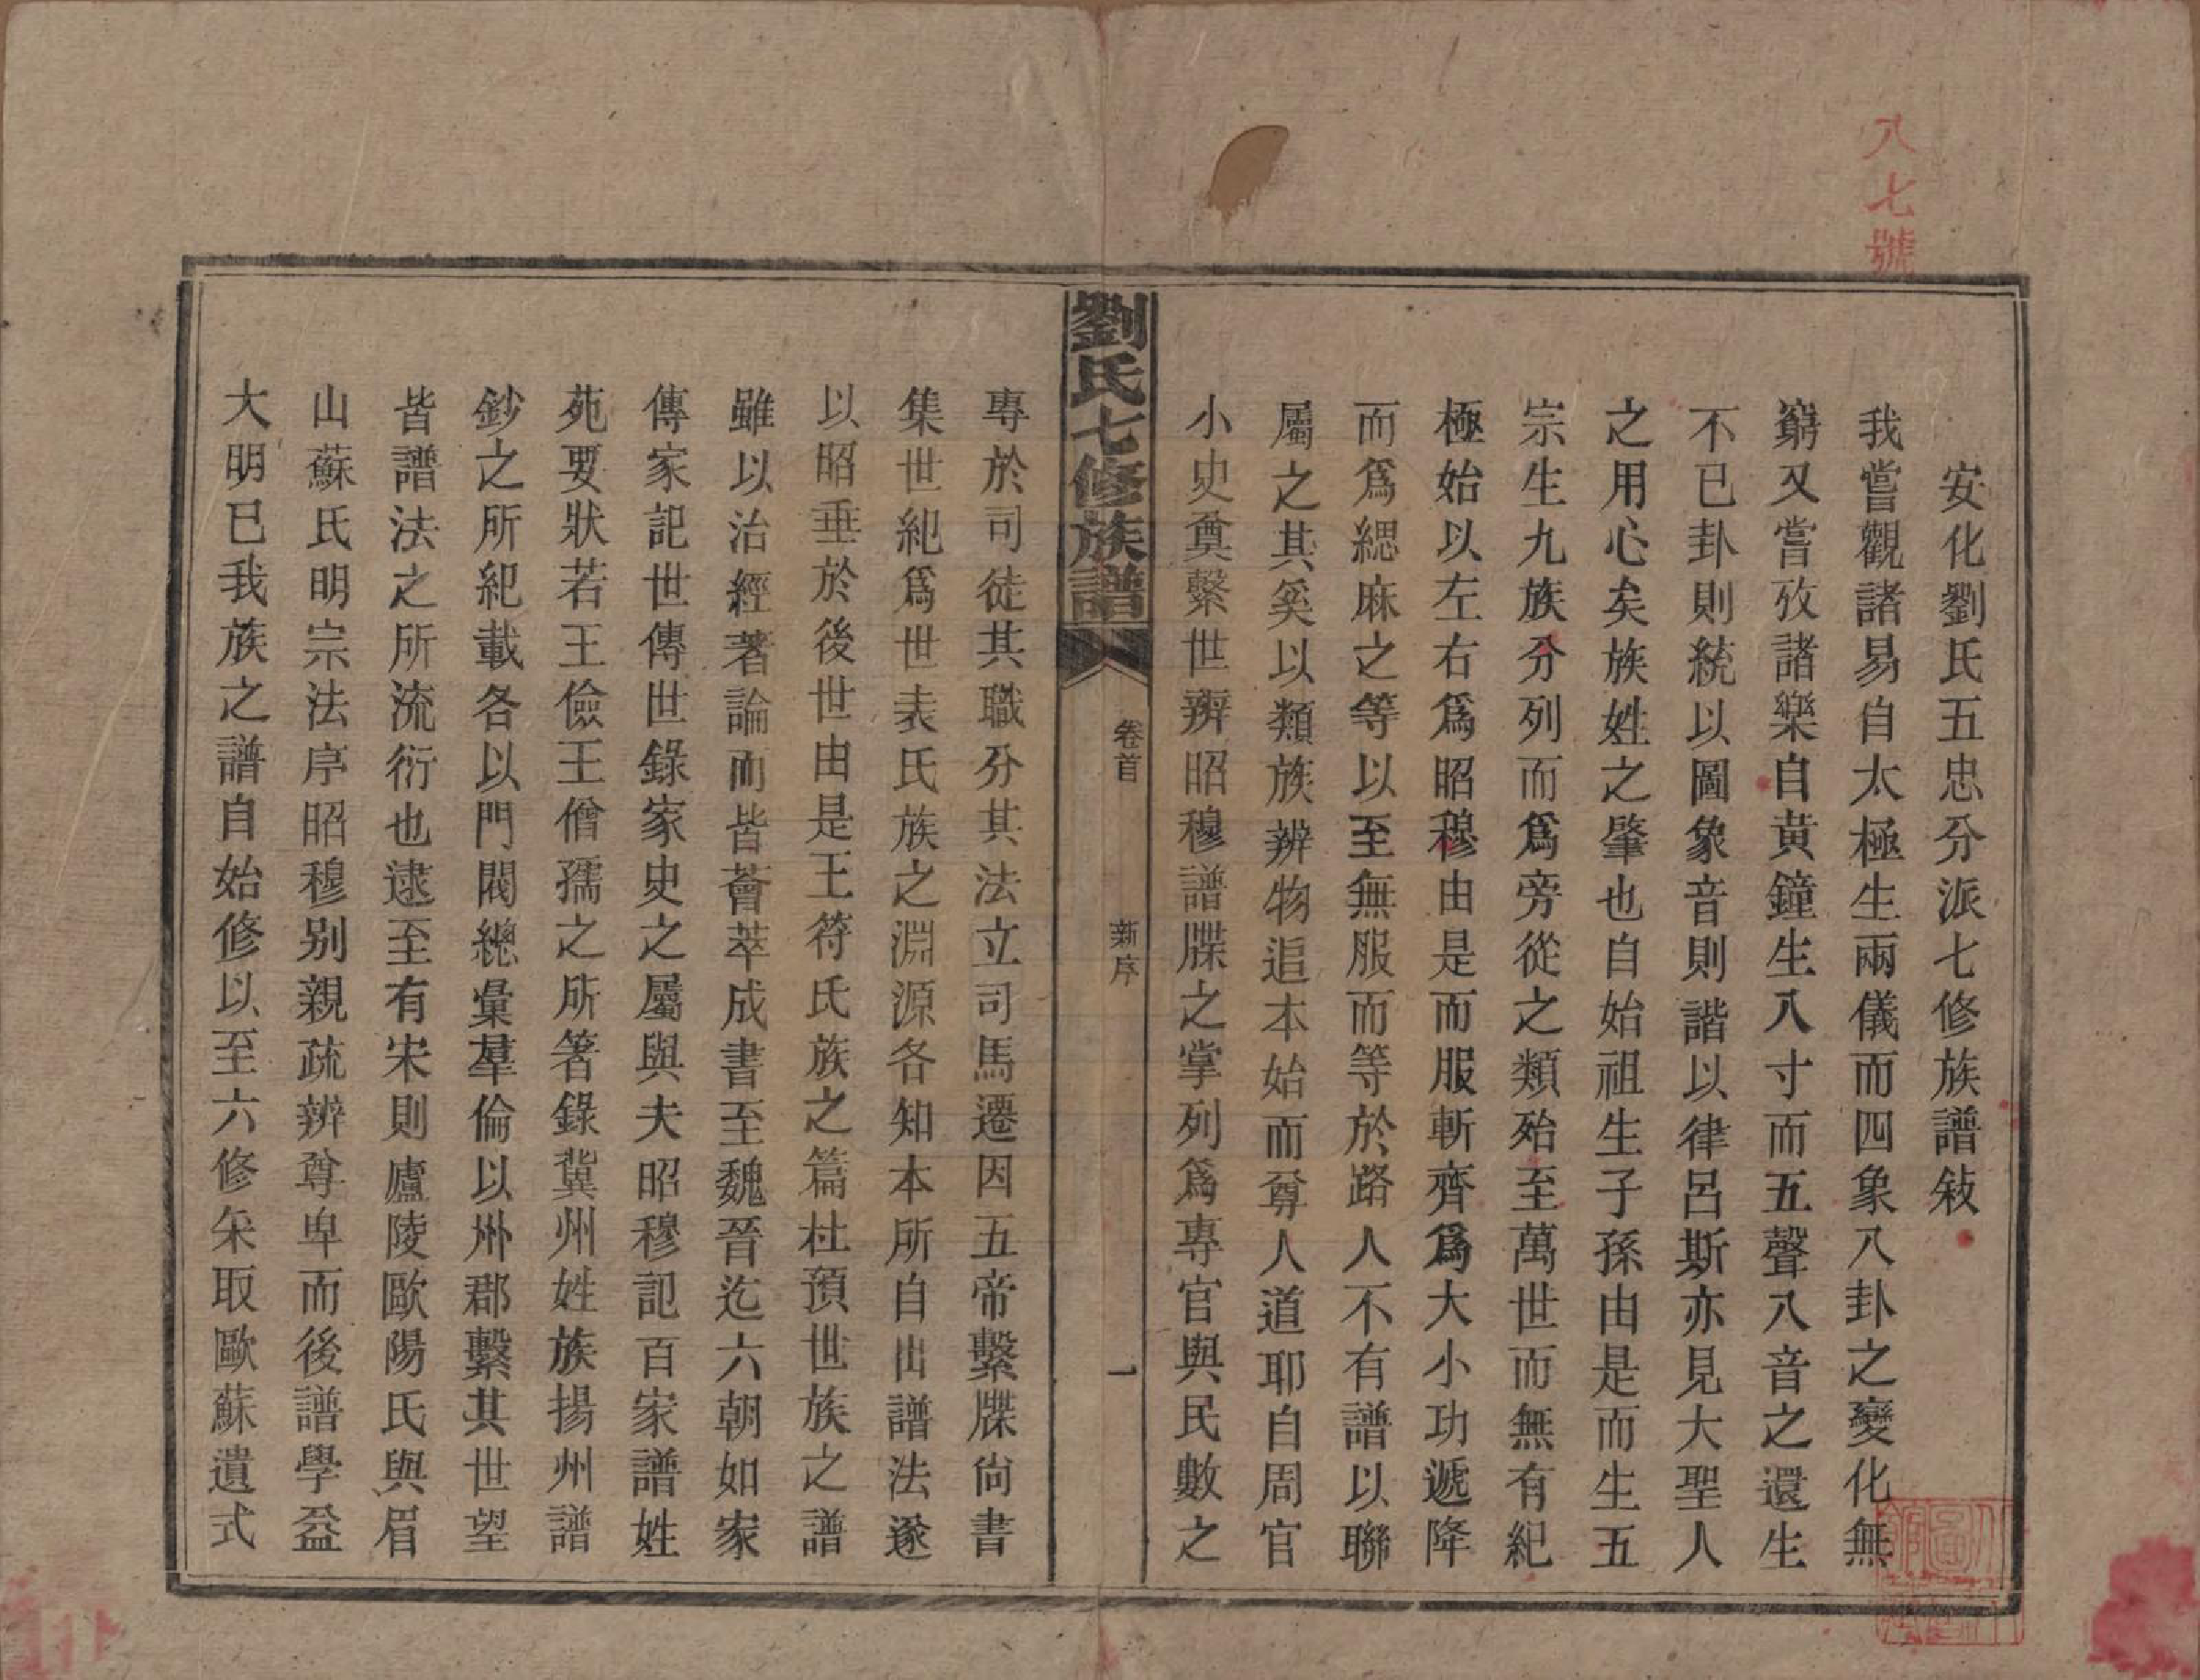 八七號
安化劉氏五忠分派七修族譜敍
我嘗觀諸易自太極生兩儀而四象八卦之變化無
窮又嘗攷諸樂自黃鐘生八寸而五聲八音之還生
不已卦則統以圖象音則諧以律呂斯亦見大聖人
之用心矣族姓之肇也自始祖生子孫由是而生五
宗生九族分列而爲旁從之類殆至萬世而無有紀
極始以左右爲昭穆由是而服斬齊爲大小功遞降
而爲緦麻之等以至無服而等於路人不有譜以聯
屬之其奚以類族辨物追本始而尊人道耶自周官
小史奠繫世辨昭穆譜牒之掌列爲專官與民數之
劉氏七修族譜
卷首
新序
一
專於司徒其職分其法立司馬遷因五帝繫牒尙書
集世紀爲世表氏族之淵源各知本所自出譜法遂
以昭垂於後世由是王符氏族之篇杜預世族之譜
雖以治經著論而皆薈萃成書至魏晉迄六朝如家
傳家記世傳世錄家史之屬與夫昭穆記百家譜姓
苑要狀若王儉王僧孺之所箸錄冀州姓族揚州譜
鈔之所紀載各以門閥總彙羣倫以州郡繫其世望
皆譜法之所流衍也逮至有宋則廬陵歐陽氏與眉
山蘇氏明宗法序昭穆别親疏辨尊卑而後譜學益
大明已我族之譜自始修以至六修采取歐蘇遺式